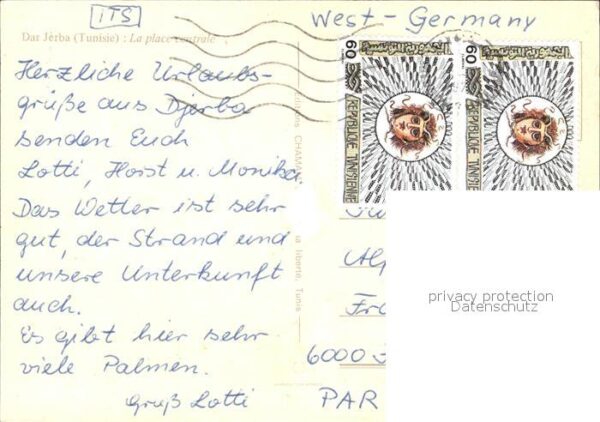 ITS
West-Germany
Dar Jerba (Tunisie) : La place centrale
Herzliche Urlaubs-
grüße aus Djerba
senden Euch
Lotti, Horst u. Monika.
Das Wetter ist sehr
gut, der Strand und
unsere Unterkunft
auch.
Es gibt hier sehr
viele Palmen.
Gruß Lotti
Editions CHAMAM
la liberté, Tunis
60
REPUBLIQUE TUNISIENNE
60
REPUBLIQUE TUNISIENNE
6000
PAR
privacy protection
Datenschutz